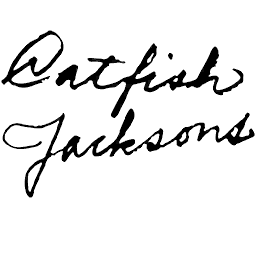 Catfish
Jacksons